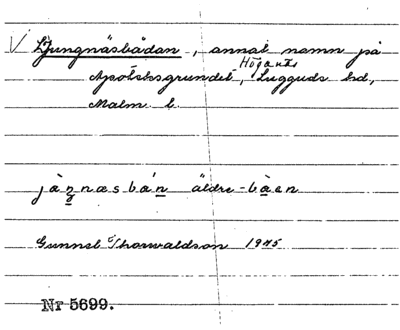 V Ljungnäsbådan, annat namn på
Höganäs
Apoteksgrundet, Luggude hd,
Malm. l.
jàŋnæsbán äldre -bàen
Gunnel Thorvaldson 1945
Nr 5699.